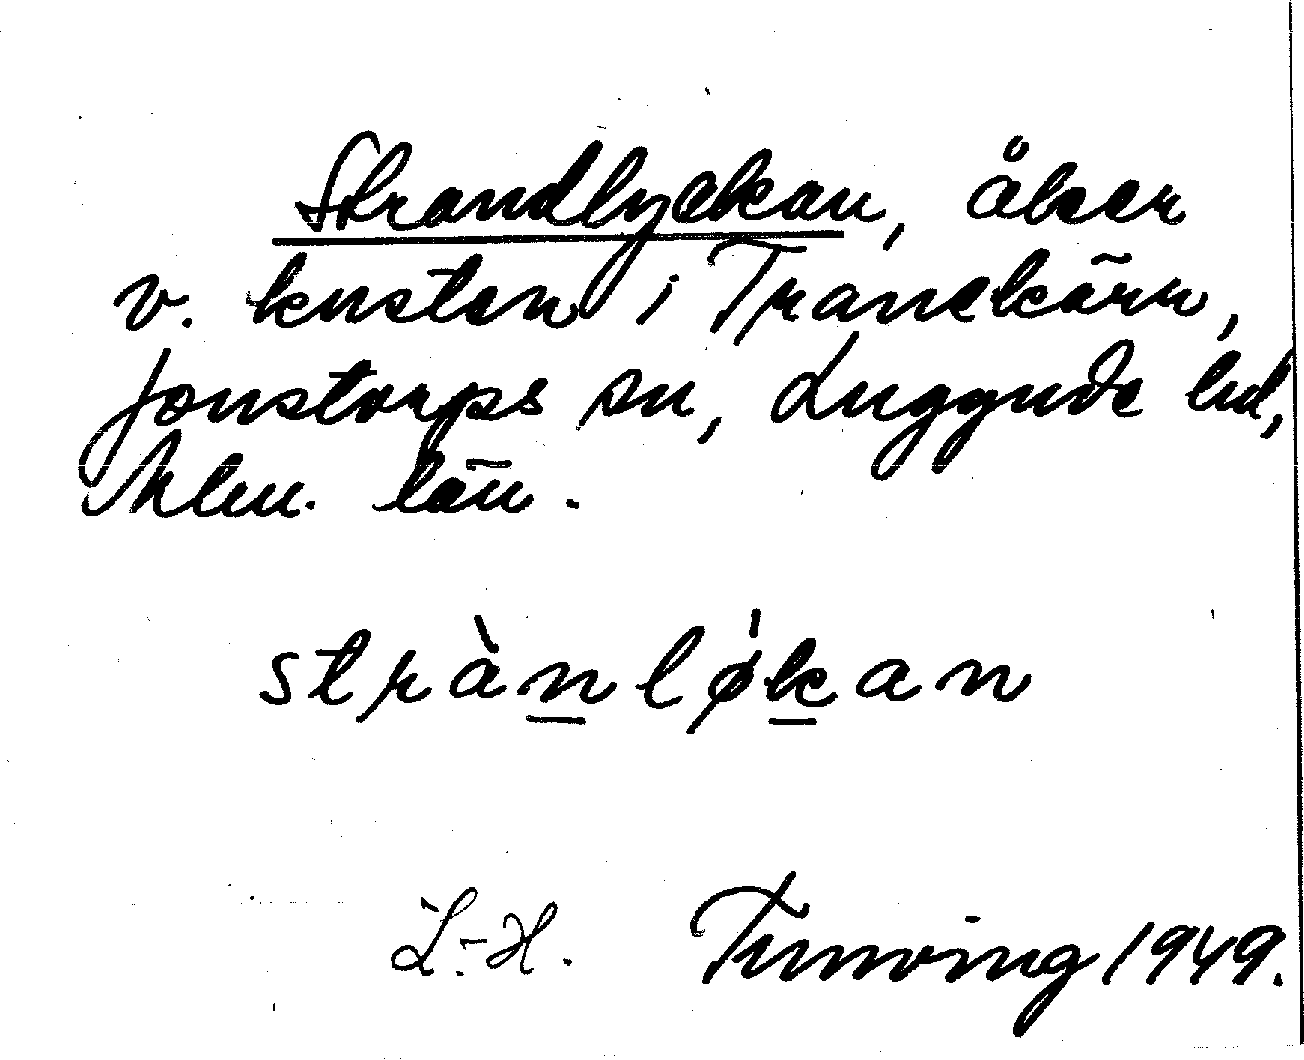 Strandlyckan, åker
v. kusten i Tranekärr,
Jonstorps sn, Luggude hd,
Mlm. län.
strànløkan
L.-H. Tunving 1949.